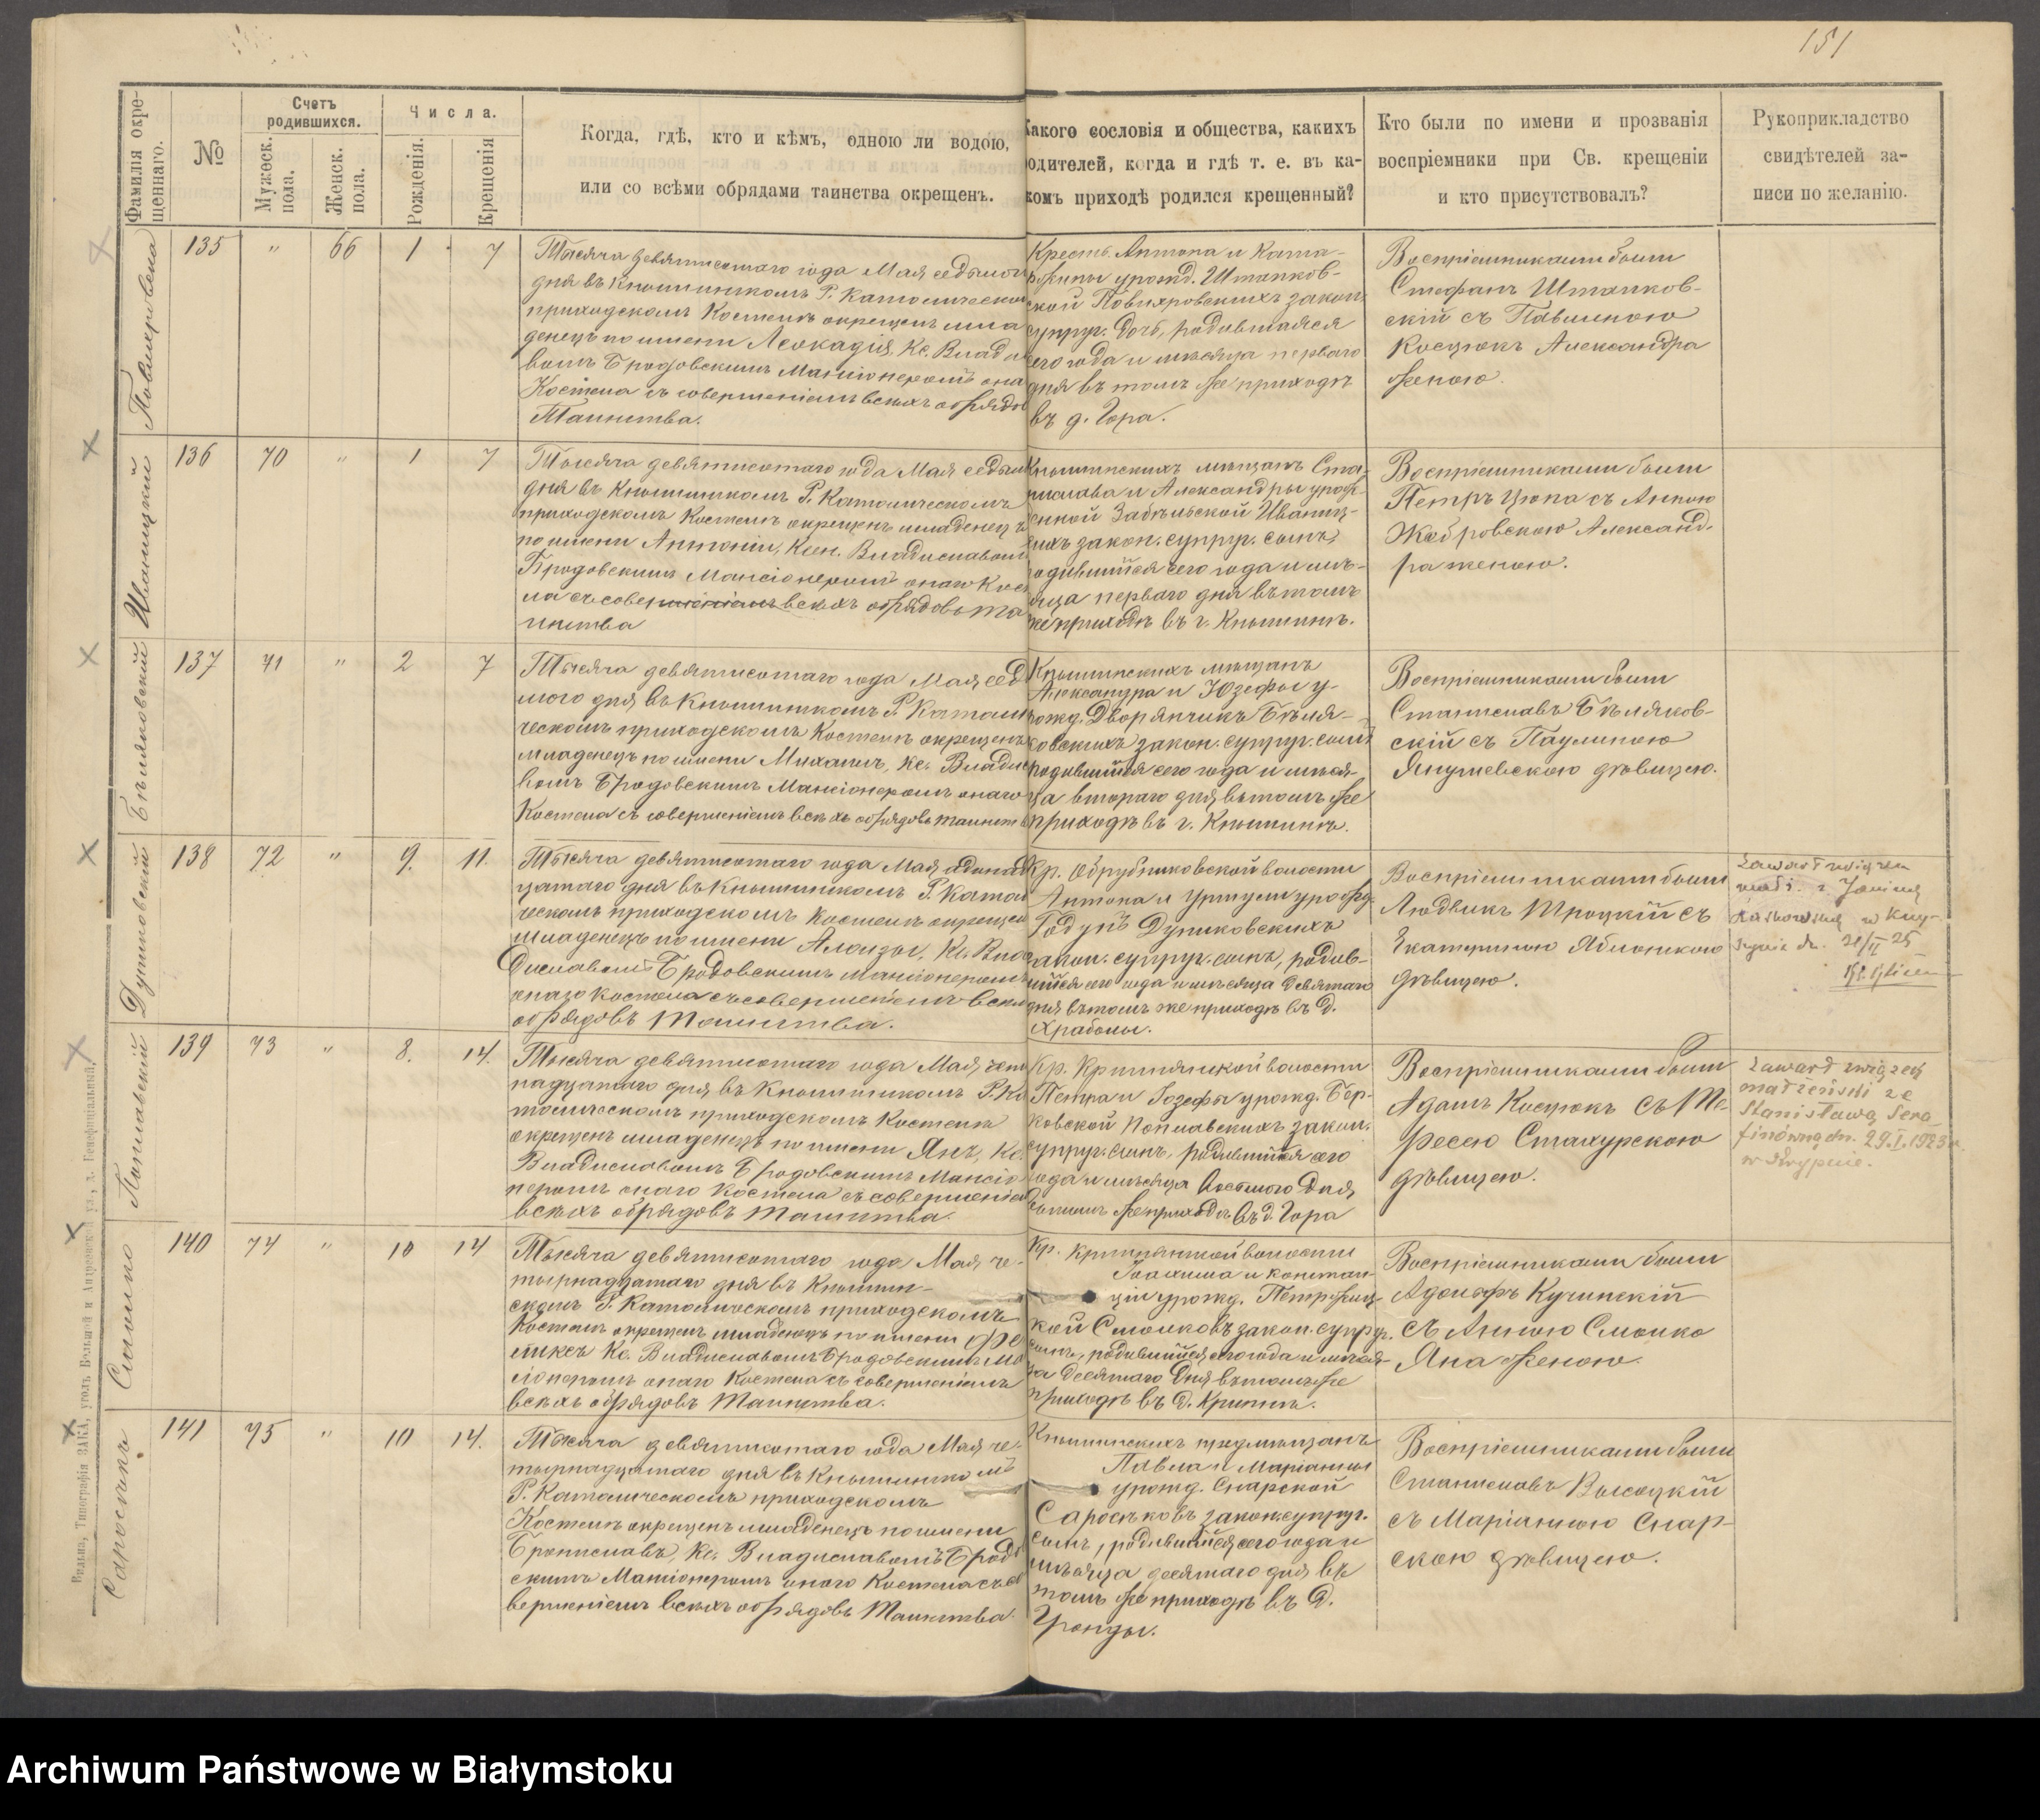 151
Фамилія окре-
щеннаго.
№
Счетъ
родившихся.
Мужеск.
пола.
Женск.
пола.
Числа.
Рожденія.
Крещенія
Когда, гдѣ, кто и кѣмъ, одною ли водою,
или со всѣми обрядами таинства окрещенъ.
Какого сословія и общества, какихъ
родителей, когда и гдѣ т. е. въ ка-
комъ приходѣ родился крещенный?
Кто были по имени и прозванія
воспріемники при Св. крещеніи
и кто присутствовалъ?
Рукоприкладство
свидѣтелей за-
писи по желанію.
135 " 66 1 7
Тысяча девятисотаго года Мая седьмого
дня въ Кнышинскомъ Р. Католическомъ
приходскомъ Костелѣ окрещенъ мла
денецъ по имени Леокадія, Кс. Влади
вомъ Бродовскимъ Мансіонеромъ она
Костела съ совершеніемъ всѣхъ обрядо
Таинства.
Крест. Антона и Ката-
рожины урожд. Штанков-
ской закон.
супруг. дочь, родившаяся
сего года и мѣсяца перваго
дня въ томъ же приходѣ
въ д. Гора.
Воспріемниками были
Стефанъ Штанков-
скій съ Павлиною
Косцюкъ Александра
женою.
Иваницкій
136 70 " 1 7
Тысяча девятисотаго года Мая седьм
дня въ Кнышинскомъ Р. Католическомъ
приходскомъ Костелѣ окрещенъ младенецъ
по имени Антоній, Ксен. Владиславомъ
Бродовскимъ Мансіонеромъ онаго Косте
ла съ совершеніемъ всѣхъ обрядовъ та
инства
Кнышинскихъ мѣщанъ Ста-
нислава и Александры урож-
енной Забѣльской Иваниц-
кихъ закон. супруг. сынъ,
родившійся сего года и мѣ-
сяца перваго дня въ томъ
же приходѣ въ г. Кнышинѣ.
Воспріемниками были
Петръ Цюпа съ Анною
Жабровскою Александ-
ра женою.
Бѣляковскій
137 71 " 2 7
Тысяча девятисотаго года Мая сед
мого дня въ Кнышинскомъ Р. Католи
ческомъ приходскомъ Костелѣ окрещенъ
младенецъ по имени Михаилъ, Кс. Владис
вомъ Бродовскимъ Мансіонеромъ онаго
Костела съ совершеніемъ всѣхъ обрядовъ таинств
Кнышинскихъ мѣщанъ
Александра и Юзефы у-
рожд. Дворянчикъ Бѣля-
ковскихъ закон. супруг. сынъ
родившійся сего года и мѣся-
ца втораго дня, въ томъ же
приходѣ въ г. Кнышинѣ.
Воспріемниками были
Станиславъ Бѣляков-
скій съ Паулиною
Янушевскою дѣвицею.
138 72 " 9. 11.
Тысяча девятисотаго года Мая одинад
цатаго дня въ Кнышинскомъ Р. Катол
ческомъ приходскомъ Костелѣ окрещен
младенецъ по имени Алоизы, Кс. Вла
диславомъ Бродовскимъ Мансіонеромъ
онаго Костела съ совершеніемъ всѣх
обрядовъ Таинства.
Кр. Обрубниковской волости
Антона и Уршули урожд.
Годунъ
закон. супруг. сынъ, родив-
шійся сего года и мѣсяца девятаго
дня въ томъ же приходѣ въ д.
Храболы.
Воспріемниками были
Людвикъ Троцкій съ
Екатериною Яблонскою
дѣвицею.
Zawarł związek
małż. z Janiną
w Kny-
szynie dn. 21/II 25
Поплавскій
139 73 " 8. 14.
Тысяча девятисотаго года Мая, четы
надцатаго дня въ Кнышинскомъ Р. Ка
толическомъ приходскомъ Костелѣ
окрещенъ младенецъ по имени Янъ, Кс.
Владиславомъ Бродовскимъ Мансіо
неромъ онаго Костела съ совершеніем
всѣхъ обрядовъ Таинства.
Кр. Крыпнянской волости
Петра и Іозефы урожд. Бер-
ковской Поплавскихъ закон.
супруг. сынъ, родившійся сего
года и мѣсяца восьмого дня,
въ томъ же приходѣ въ д. Гора
Воспріемниками были
Адамъ Косцюкъ съ Те-
ресею Стахурскою
дѣвицею.
Zawarł związek
małżeński ze
Stanisławą Sera
finówną dn. 29.I.1923 r.
w Krypnie.
Смолко
140 74 " 10 14
Тысяча девятисотаго года Мая, че-
тырнадцатаго дня въ Кнышин-
скомъ Р. Католическомъ приходскомъ
Костелѣ окрещенъ младенецъ по имени Фе
ликсъ Кс. Владиславомъ Бродовскимъ Ма
сіонеромъ онаго Костела съ совершеніемъ
всѣхъ обрядовъ Таинства.
Кр. Крыпнянской волости
Іоахима и Констан-
ціи урожд.
кой Смолковъ закон. супруг.
сынъ, родившійся сего года и мѣся-
ца десятаго дня въ томъ же
приходѣ въ д. Крыпнѣ.
Воспріемниками были
Адольфъ Кучинскій
съ Анною Смолко
Яна женою.
Саросѣкъ
141 75 " 10 14.
Тысяча девятисотаго года Мая че-
тырнадцатаго дня въ Кнышинскомъ
Р. Католическомъ приходскомъ
Костелѣ окрещенъ младенецъ по имени
Брониславъ, Кс. Владиславомъ Брод
скимъ Мансіонеромъ онаго Костела съ со
вершеніемъ всѣхъ обрядовъ Таинства.
Кнышинскихъ предмѣщанъ
Павла и Маріанны
урожд. Снарской
Саросѣковъ закон. супруг.
сынъ, родившійся сего года и
мѣсяца десятаго дня въ
томъ же приходѣ въ д.
Гронды.
Воспріемниками были
Станиславъ Высоцкій
съ Маріанною Снар-
скою дѣвицею.
Archiwum Państwowe w Białymstoku